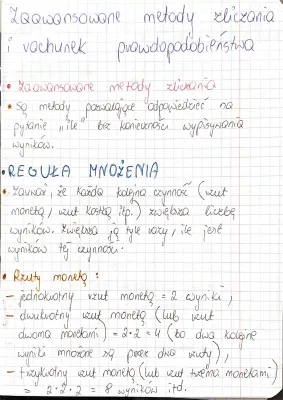 Zaawansowane metody zliczania
i rachunek prawdopodobieństwa
• Zaawansowane metody zliczania
• Są metody pozwalające odpowiedzieć na
pytanie „ile” bez konieczności wypisywania
wyników.
• REGUŁA MNOŻENIA
• Zauważ, że każda kolejna czynność (rzut
monetą, rzut kostką itp.) zwiększa liczbę
wyników. Zwiększa ją tyle razy, ile jest
wyników tej czynności.
• Rzuty monetą:
– jednokrotny rzut monetą = 2 wyniki,
– dwukrotny rzut monetą (lub rzut
dwoma monetami) = 2·2 = 4 (bo dwa kolejne
wyniki mnożone są przez dwa rzuty),
– trzykrotny rzut monetą (lub rzut trzema monetami)
= 2·2·2 = 8 wyników itd.